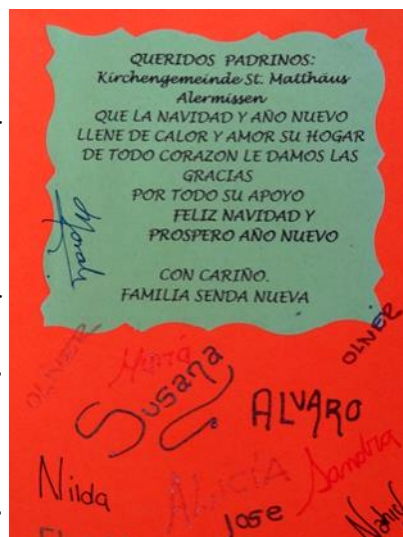 QUERIDOS PADRINOS:
Kirchengemeinde St. Matthäus
Alermissen
QUE LA NAVIDAD Y AÑO NUEVO
LLENE DE CALOR Y AMOR SU HOGAR
DE TODO CORAZON LE DAMOS LAS
GRACIAS
POR TODO SU APOYO
FELIZ NAVIDAD Y
PROSPERO AÑO NUEVO
CON CARIÑO.
FAMILIA SENDA NUEVA
OLIVER
OLIVER
Susana
ALVARO
Nilda
ALICIA
Sandra
Jose